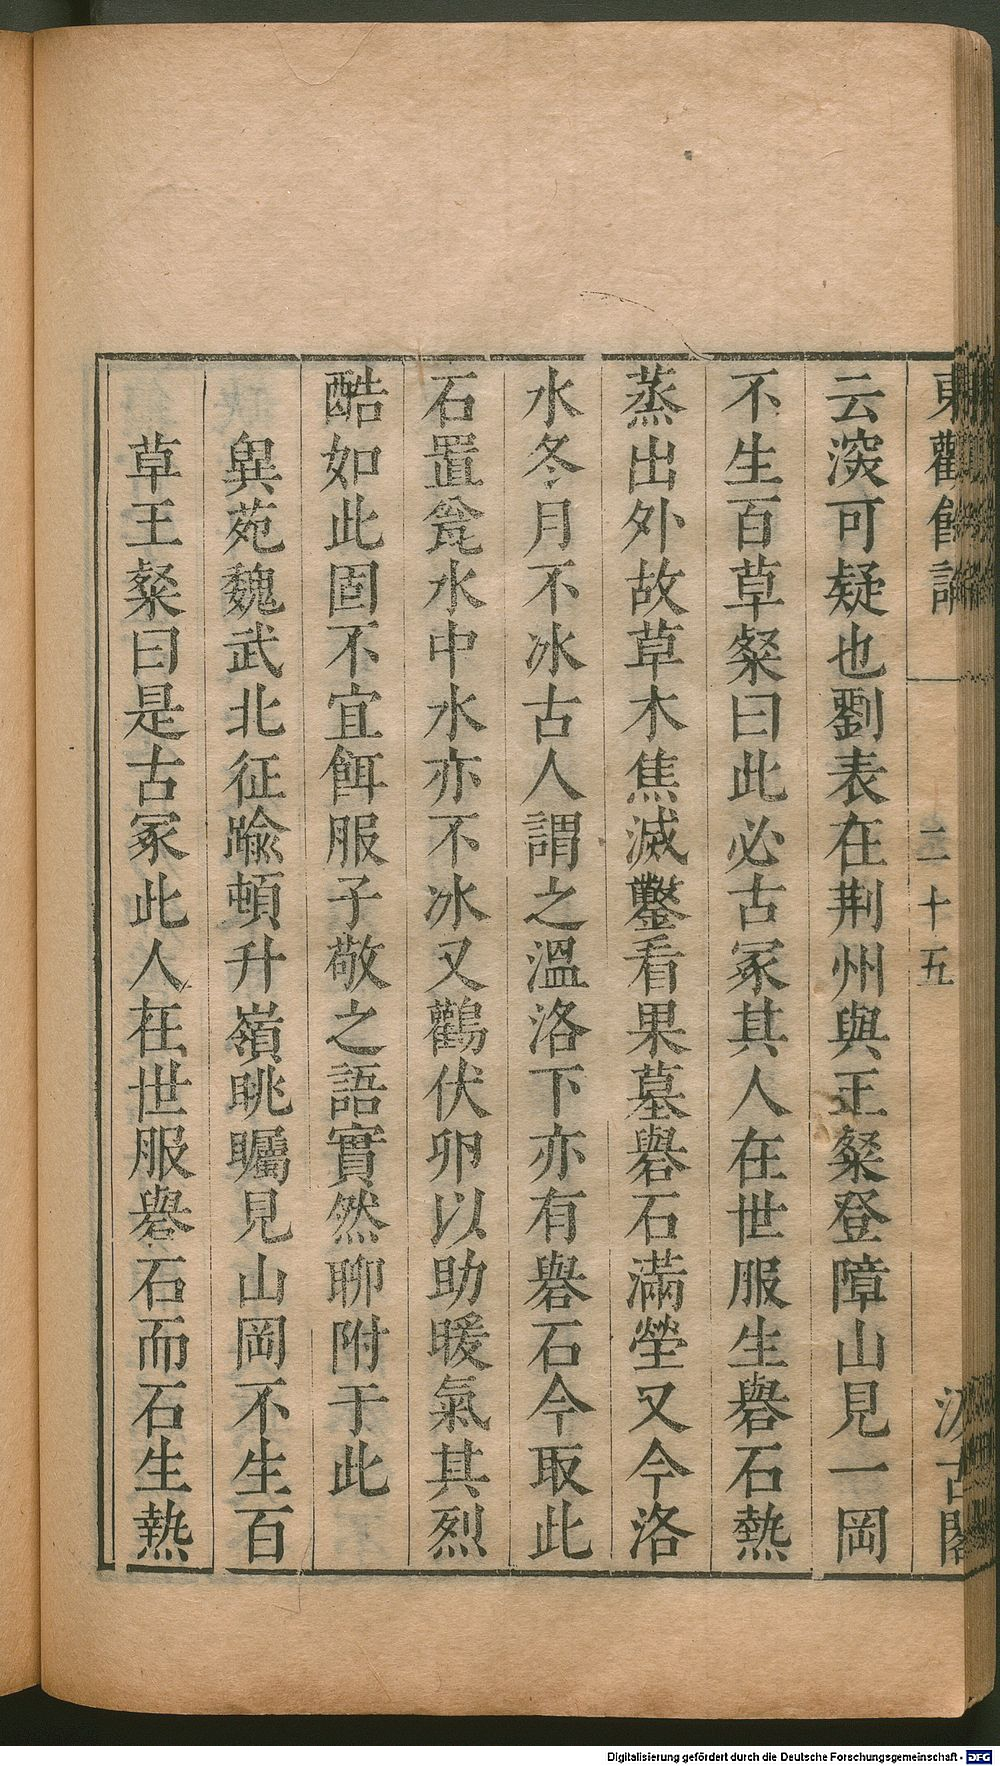 東觀餘論
二十五
汲古閣
云深可疑也劉表在荆州與王粲登障山見一岡
不生百草粲曰此必古冢其人在世服生礜石熱
蒸出外故草木焦滅鑿看果墓礜石滿塋又今洛
水冬月不冰古人謂之溫洛下亦有礜石今取此
石置瓮水中水亦不冰又鸛伏卵以助暖氣其烈
酷如此固不宜餌服子敬之語實然聊附于此
異苑魏武北征踰頓升嶺眺矚見山岡不生百
草王粲曰是古冢此人在世服礜石而石生熱
Digitalisierung gefördert durch die Deutsche Forschungsgemeinschaft - DFG